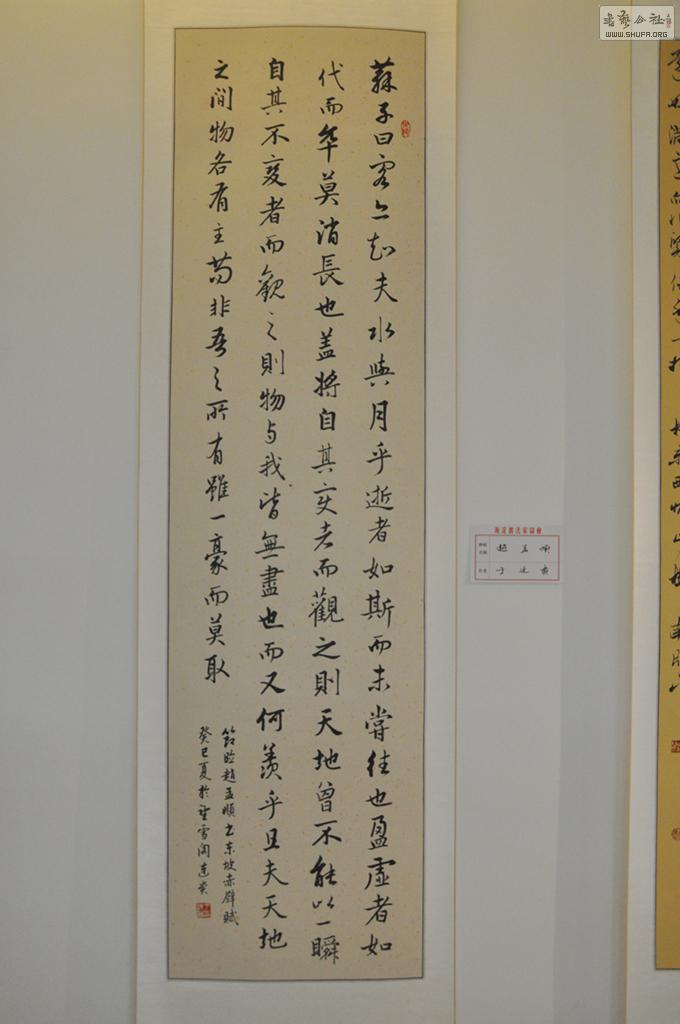 蘇子曰客亦知夫水與月乎逝者如斯而未嘗往也盈虛者如
代而卒莫消長也盖將自其变者而觀之則天地曾不能以一瞬
自其不变者而觀之則物与我皆無盡也而又何羨乎且夫天地
之間物各有主苟非吾之所有雖一豪而莫取
節臨趙孟頫书东坡赤壁賦
癸巳夏於雪阁
海淀書法家協會
趙孟頫
書藝公社
WWW.SHUFA.ORG